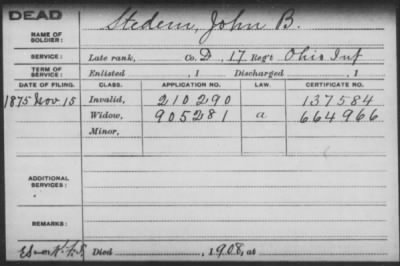 DEAD
NAME OF SOLDIER: Stedem, John B.
SERVICE: Late rank, Co. D, 17 Reg't Ohio Inf
TERM OF SERVICE: Enlisted , 1 Discharged , 1
DATE OF FILING. CLASS. APPLICATION NO. LAW. CERTIFICATE NO.
1875 Nov 15 Invalid, 210290 137584
Widow, 905281 a 664966
Minor,
ADDITIONAL SERVICES:
REMARKS:
Died , 1908, at